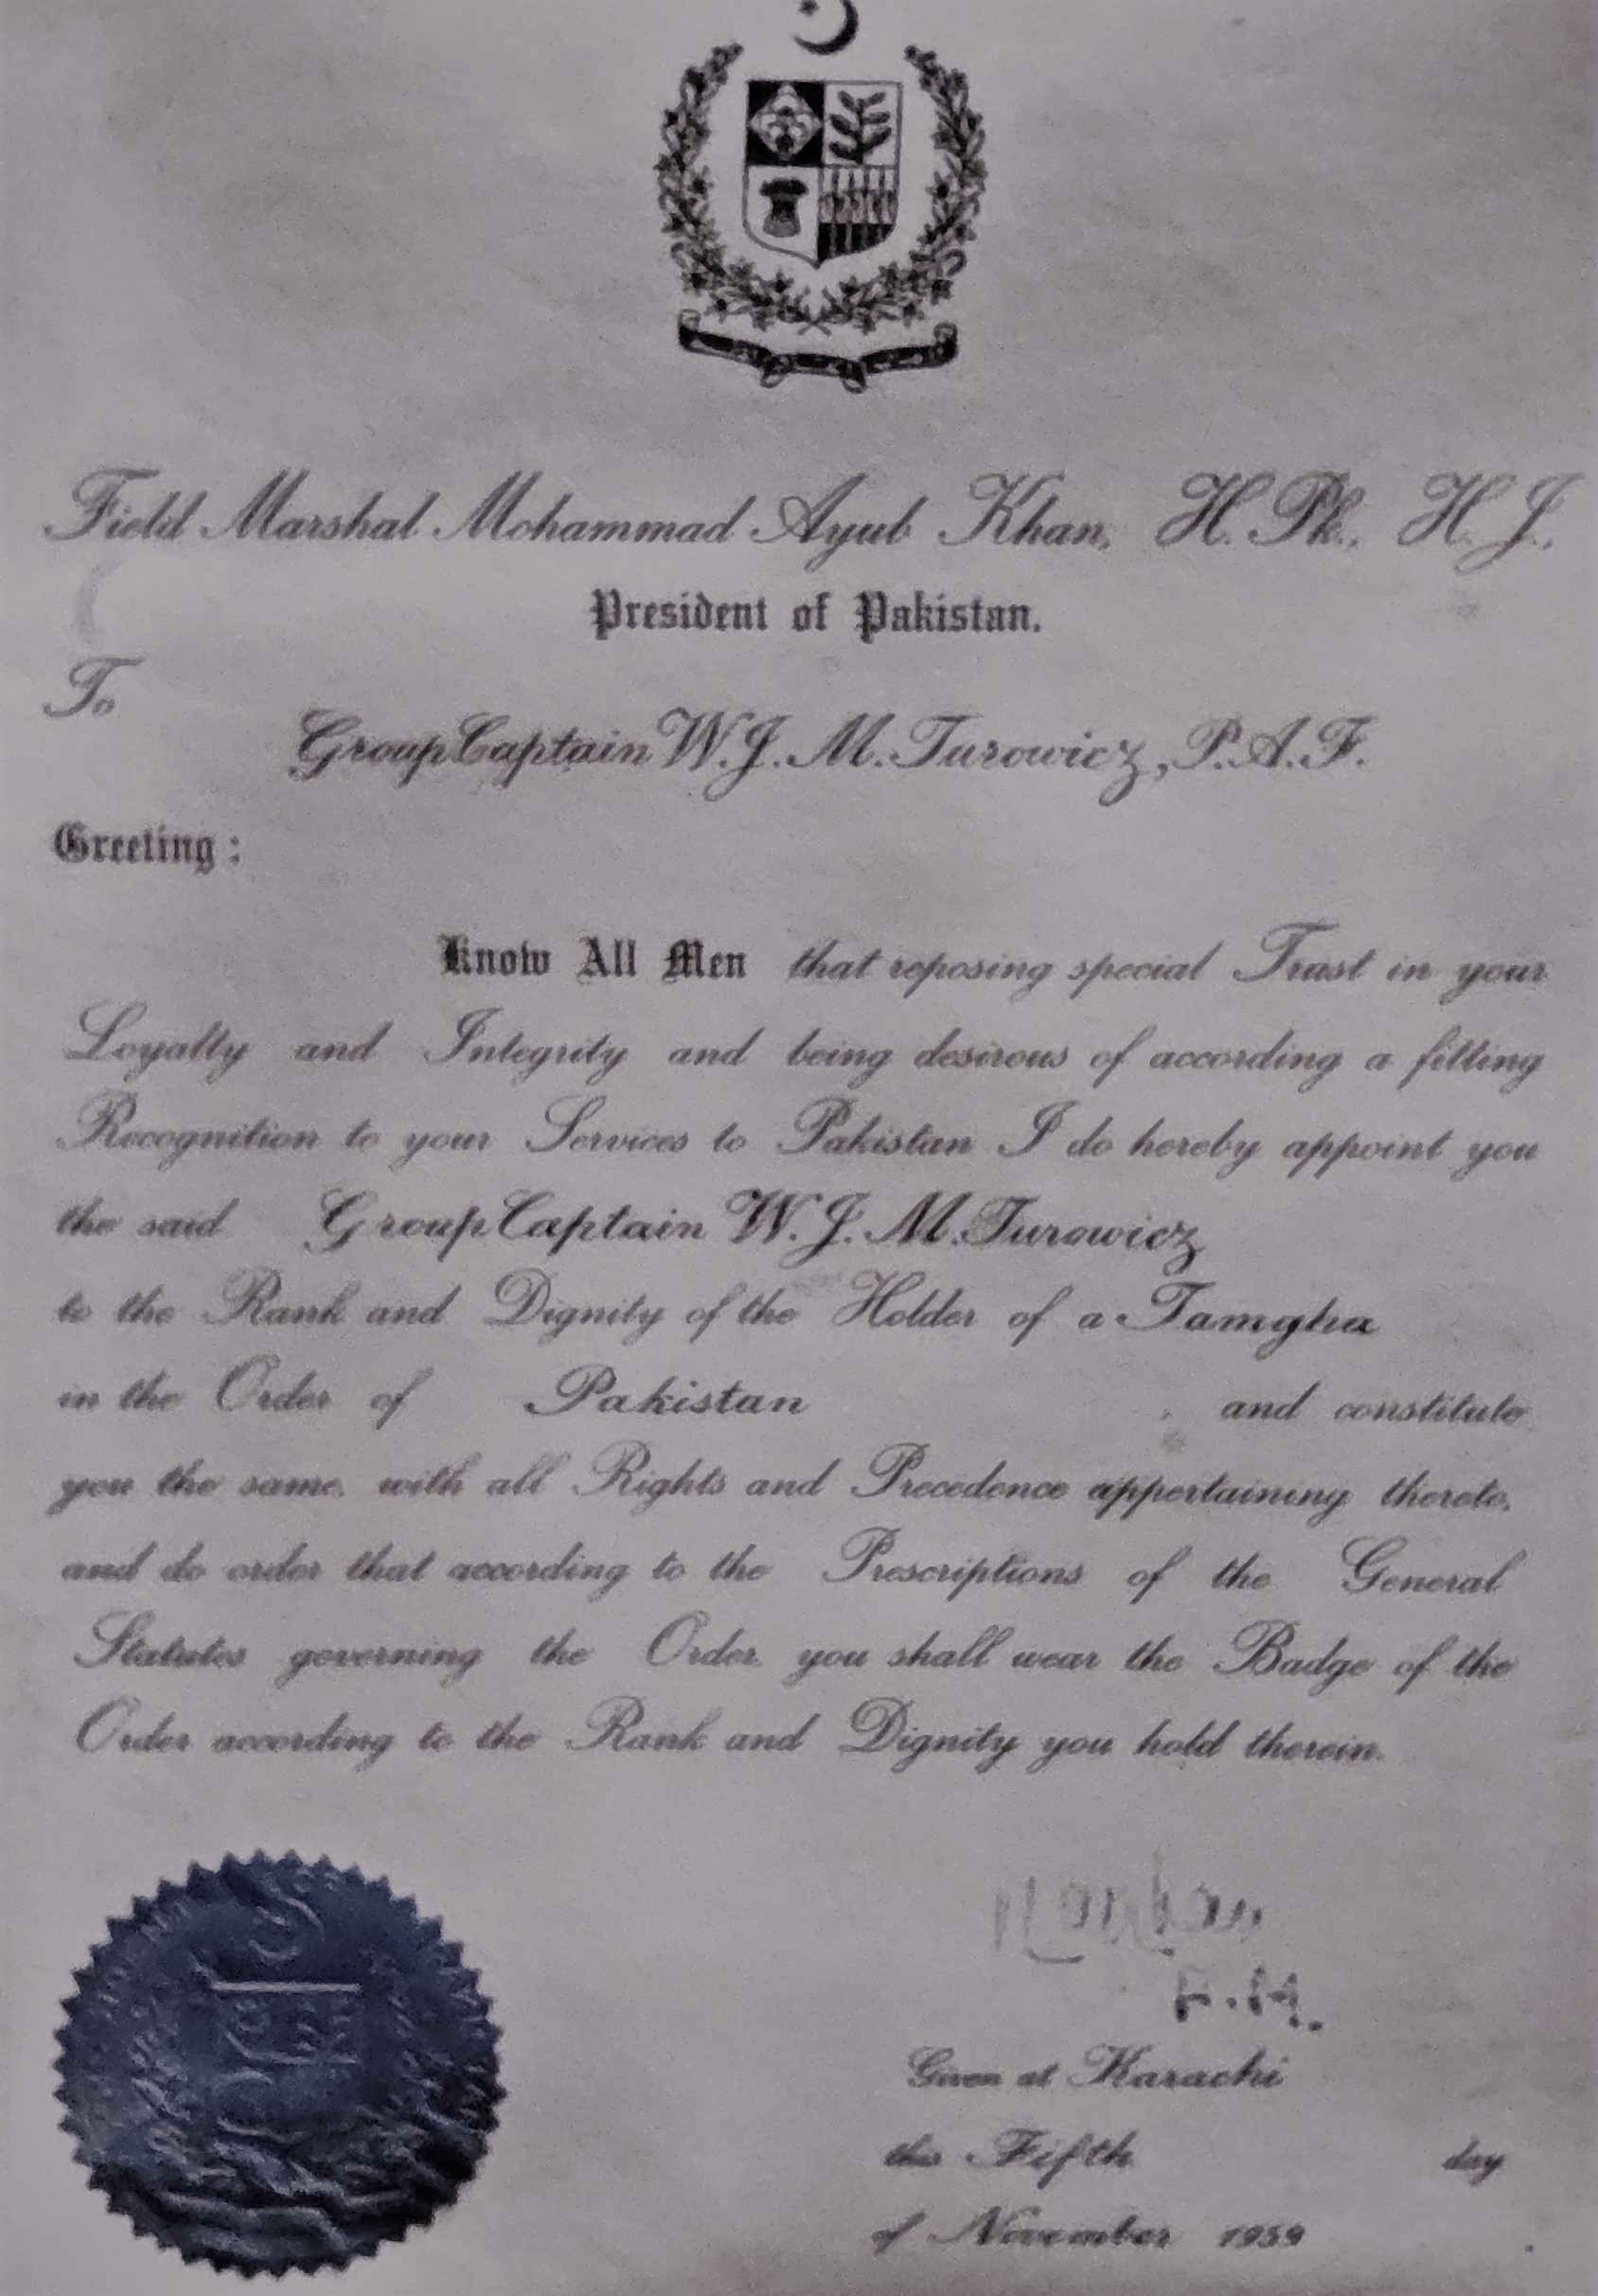 Field Marshal Mohammad Ayub Khan, H.Pk., H.J.,
President of Pakistan.
To
Group Captain W.J.M. Turowicz, P.A.F.
Greeting:
Know All Men that reposing special Trust in your
Loyalty and Integrity and being desirous of according a fitting
Recognition to your Services to Pakistan I do hereby appoint you
the said Group Captain W.J.M. Turowicz
to the Rank and Dignity of the Holder of a Tamgha
in the Order of Pakistan and constitute
you the same with all Rights and Precedence appertaining thereto,
and do order that according to the Prescriptions of the General
Statutes governing the Order you shall wear the Badge of the
Order according to the Rank and Dignity you hold therein.
Given at Karachi
this Fifth day
of November 1959